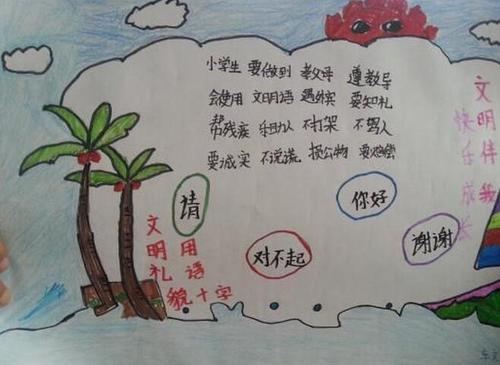 小学生 要做到 遵教导
会使用 文明语 遇外宾 要知礼
帮残疾 乐助人 不打架 不骂人
要诚实 不说谎 损公物 要赔偿
文明伴我
快乐成长
请
你好
对不起
谢谢
文明礼貌
用语
十字